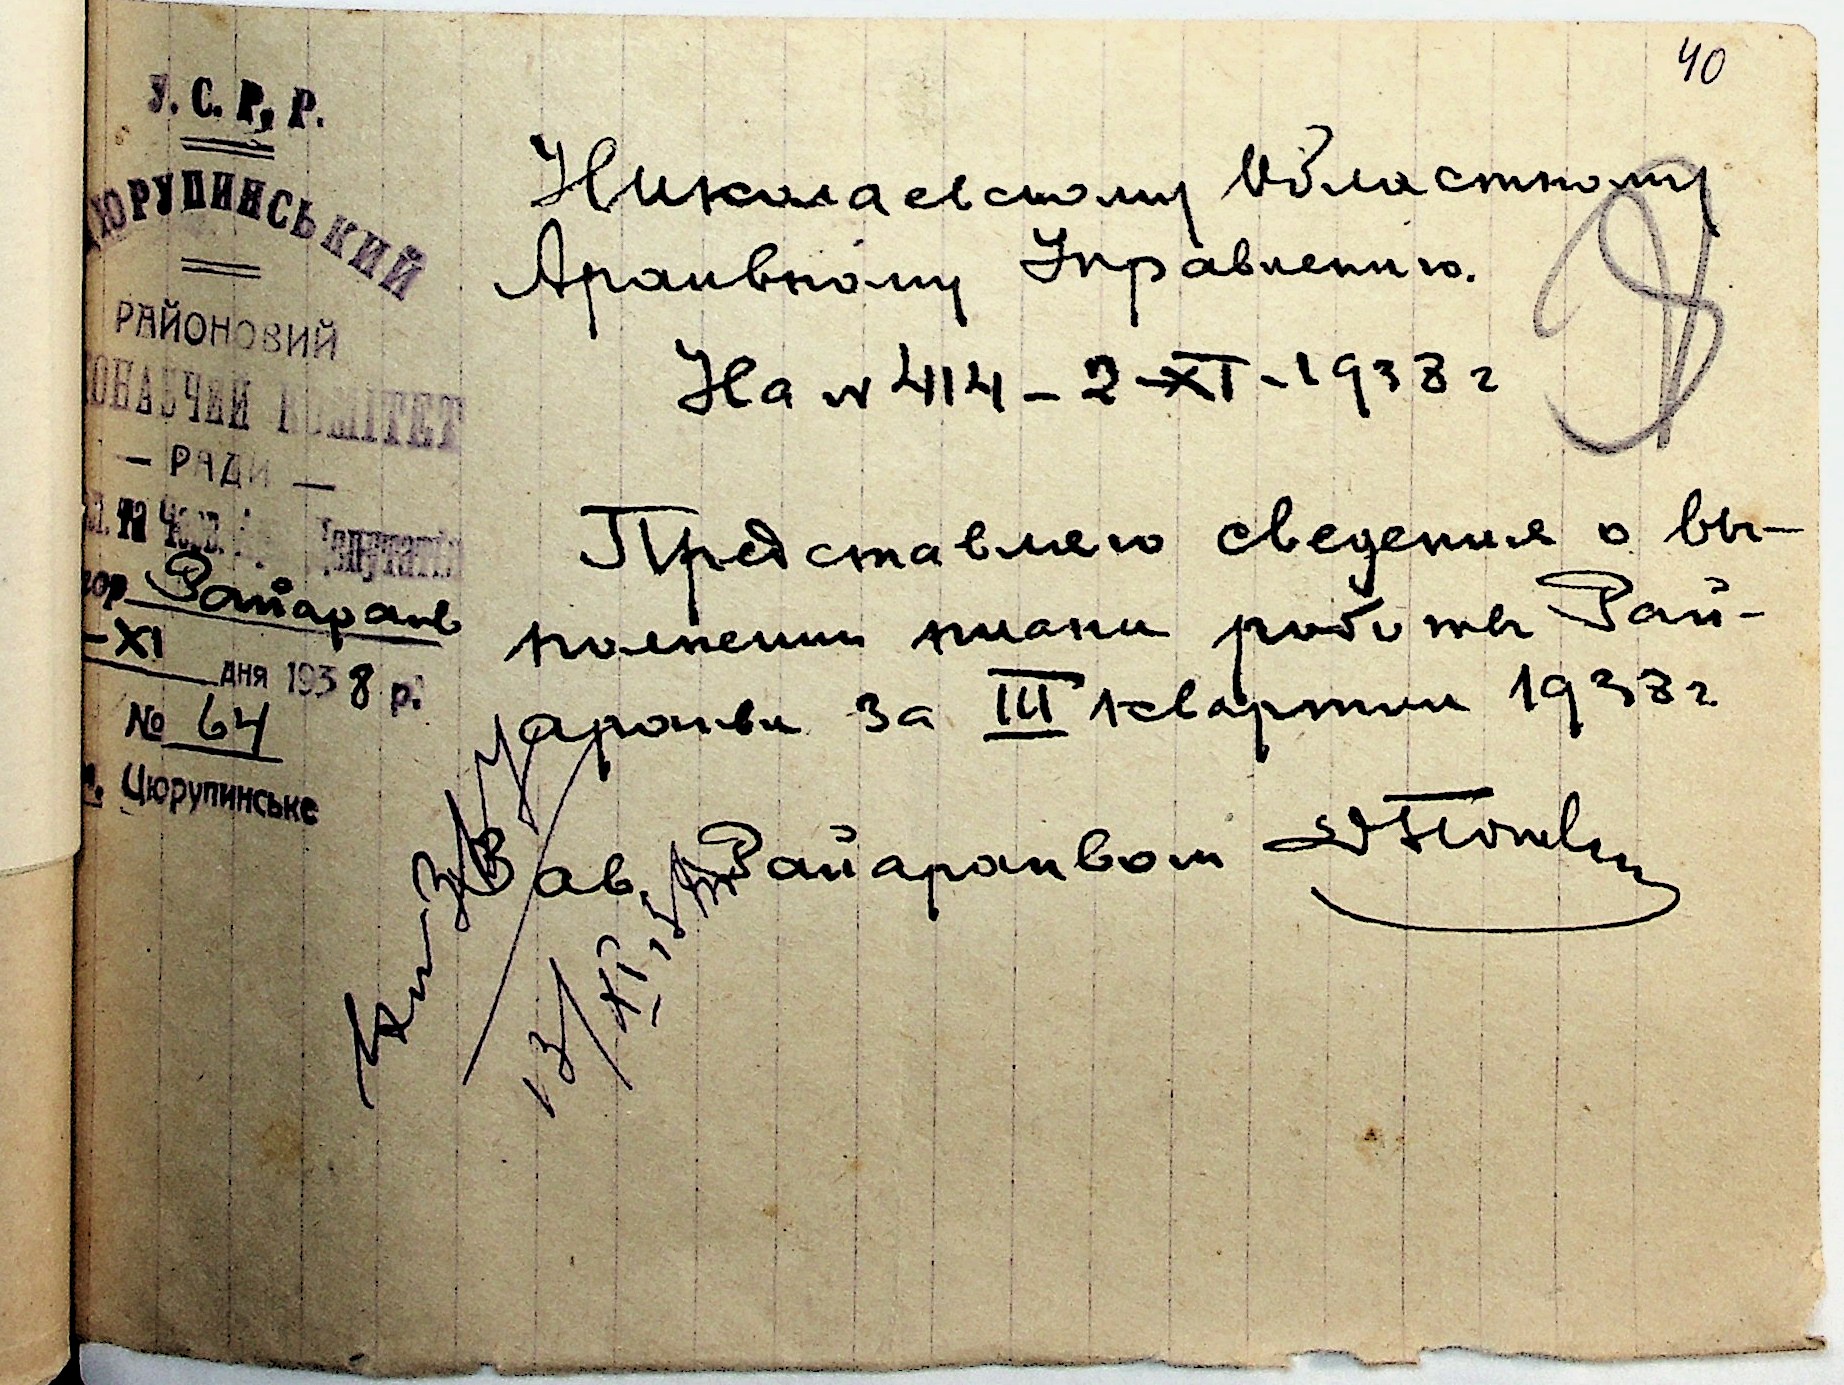 40
У. С. Р. Р.
ЮРУПИНСЬКИЙ
РАЙОНОВИЙ
ОНАВЧИЙ КОМІТЕТ
— РАДИ —
та
Райархив
-XI
дня 1938 р.
№ 64
Цюрупинське
Николаевскому Областному
Архивному Управлению.
На № 414 - 2-XI-1938 г
Представляю сведения о вы-
полнении плана работы Рай-
архива за III квартал 1938 г
Зав. Райархивом
13/XI